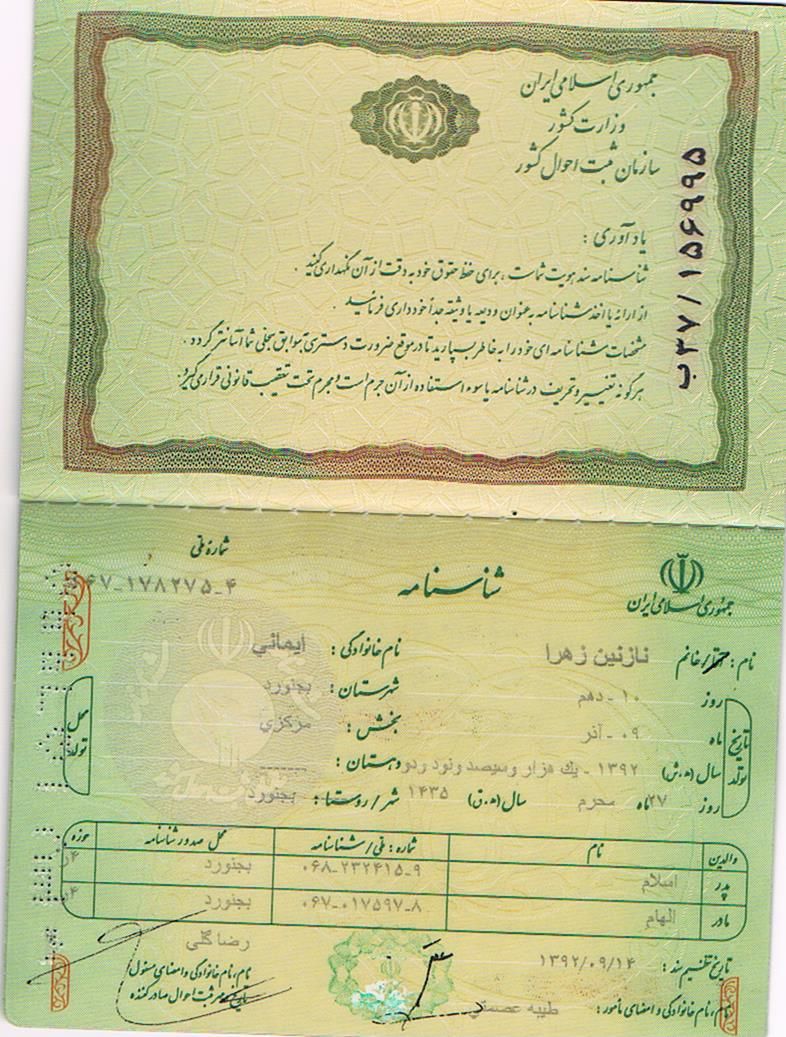 جمهوری اسلامی ایران
وزارت کشور
سازمان ثبت احوال کشور
ب۳۷/۱۵۶۹۹۵
یادآوری :
شناسنامه سند هویت شماست ، برای حفظ حقوق خود به دقت از آن نگهداری کنید .
از ارائه یا اخذ شناسنامه به عنوان ودیعه یا وثیقه جداً خودداری فرمائید .
مشخصات شناسنامه ای خود را به خاطر بسپارید تا در موقع ضرورت دسترسی به سوابق سجلی شما آسانتر گردد .
هرگونه تغییر و تحریف در شناسنامه یا سوء استفاده از آن جرم است و مجرم تحت تعقیب قانونی قرار می گیرد.
جمهوری اسلامی ایران
شناسنامه
شماره ملی
۶۷-۱۷۸۲۷۵-۴
نام : آقا/خانم نازنین زهرا نام خانوادگی : ایمانی
تاریخ تولد
روز ۱۰ - دهم شهرستان : بجنورد
ماه ۰۹ - آذر بخش : مرکزی
سال (ه.ش) ۱۳۹۲ - یك هزار و سیصد و نود و دو دهستان : ------
روز ۲۷ ماه محرم سال (ه.ق) ۱۴۳۵ شهر / روستا : بجنورد
محل تولد
والدین نام شماره : ملی/ شناسنامه محل صدور شناسنامه حوزه
پدر اسلام ۰۶۸-۲۳۲۴۱۵-۹ بجنورد ۴ر
مادر الهام ۰۶۷-۰۱۷۵۹۷-۸ بجنورد ۴ر
تاریخ تنظیم سند : ۱۳۹۲/۰۹/۱۴
رضا گلی
نام، نام خانوادگی و امضای مسئول
و مهر ثبت احوال صادر کننده
نام، نام خانوادگی و امضای مأمور : طیبه